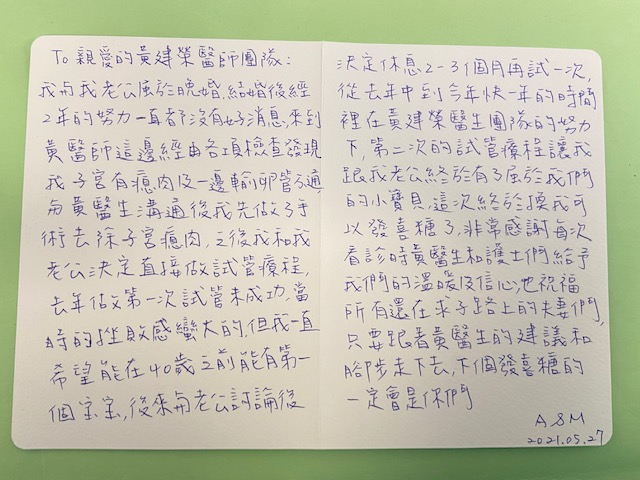 To 親愛的黃建榮醫師團隊：
我與我老公屬於晚婚，結婚後經
2年的努力一直都沒有好消息，來到
黃醫師這邊經由各項檢查發現
我子宮有瘜肉及一邊輸卵管不通，
與黃醫生溝通後我先做了手
術去除子宮瘜肉，之後我和我
老公決定直接做試管療程，
去年做第一次試管未成功，當
時的挫敗感蠻大的，但我一直
希望能在40歲之前能有第一
個寶寶，後來與老公討論後
決定休息2-3個月再試一次，
從去年中到今年快一年的時間
裡在黃建榮醫生團隊的努力
下，第二次的試管療程讓我
跟我老公終於有了屬於我們
的小寶貝，這次終於換我可
以發喜糖了，非常感謝每次
看診時黃醫生和護士們給予
我們的溫暖及信心，也祝福
所有還在求子路上的夫妻們，
只要跟著黃醫生的建議和
腳步走下去，下個發喜糖的
一定會是你們
A&M
2021.05.27